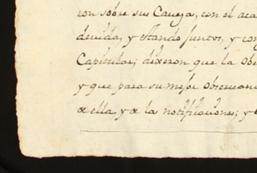 ron sobre sus Cavezas, con el aca
devida, y estando juntos, y con
Capitular; dixeron que la Obe
y que para su mejor Observan
de ella, y de la notificaciones; y